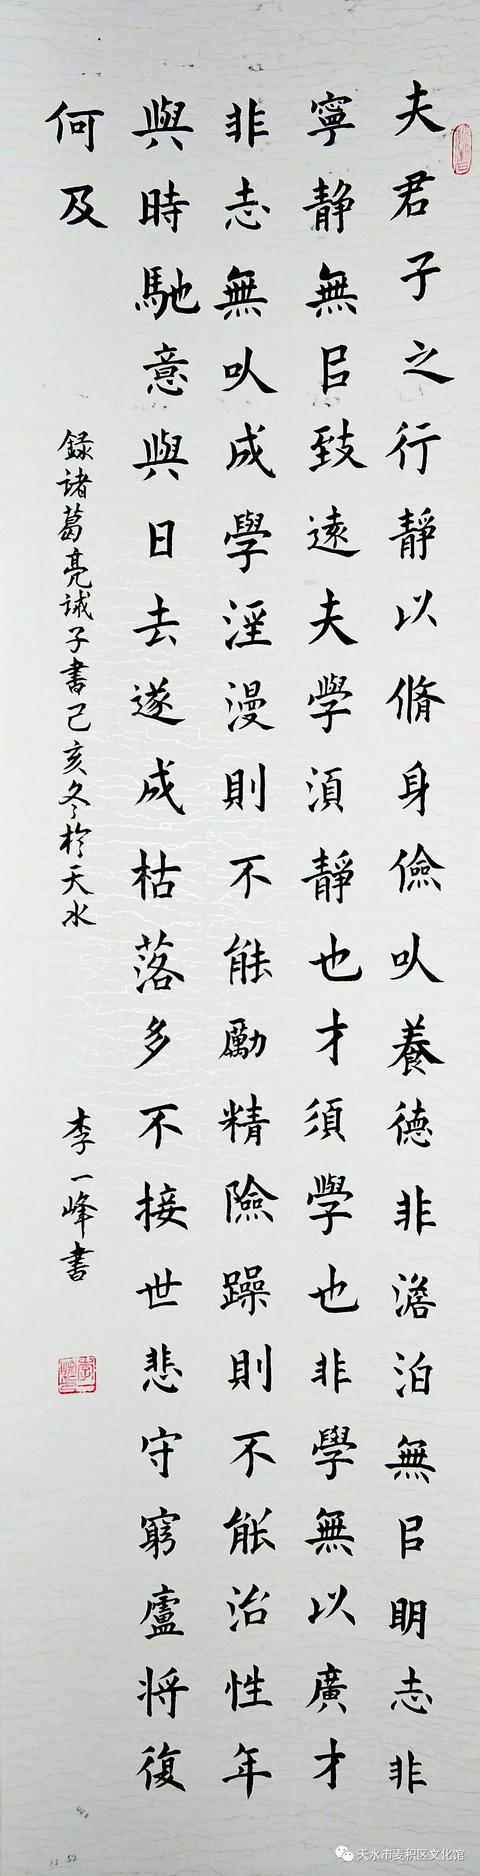 夫君子之行靜以脩身儉㕥養德非澹泊無㠯明志非
寧靜無㠯致遠夫學須靜也才須學也非學無以廣才
非志無㕥成學淫漫則不能勵精險躁則不能治性年
與時馳意與日去遂成枯落多不接世悲守窮廬將復
何及
録諸葛亮诫子書己亥冬於天水
李一峰書
天水市麦积区文化馆